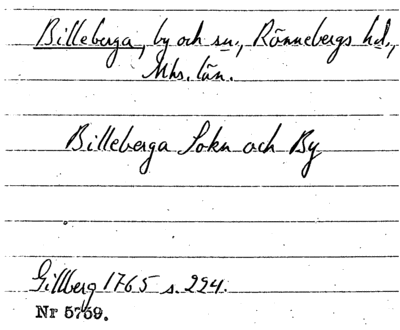 Billeberga, by och sn., Rönnebergs hd.,
Mhs. län.
Billeberga Sokn och By
Gillberg 1765 s. 224.
Nr 5759.